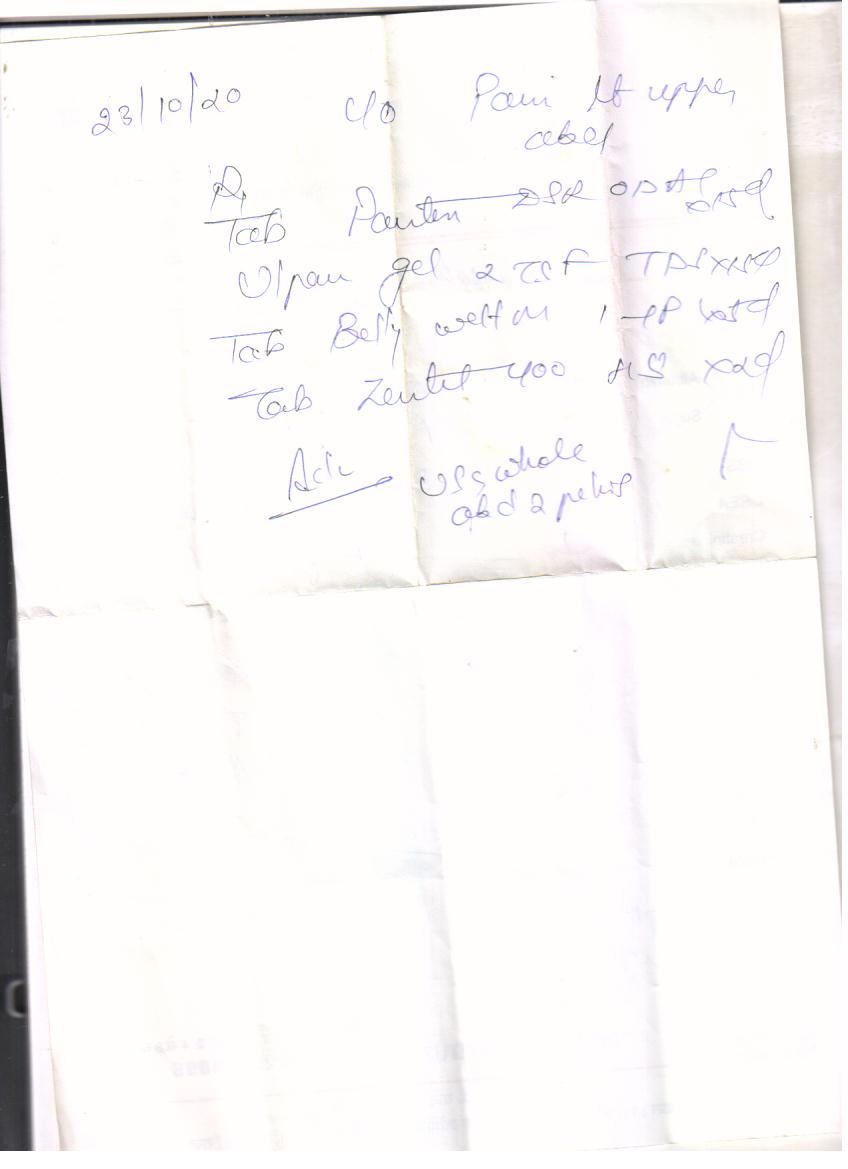 23/10/20 C/O Pain Lt upper
abd
Rx
Tab Panten DSR OD AC x15d
Ulpan gel 2 TSF TDS x15d
Tab Belly well M 1 x15d
Tab Zentel 400 HS x2d
Adv USG whole
abd 2 pelvis